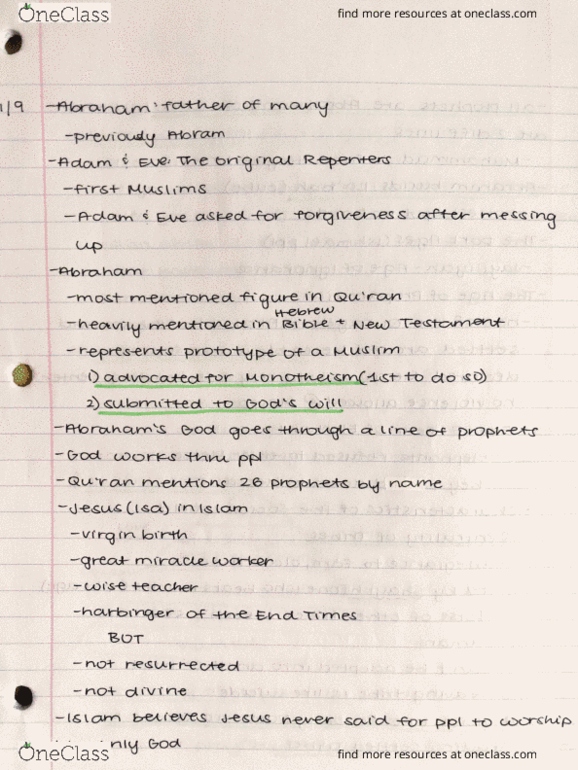 OneClass
find more resources at oneclass.com
1/9 -Abraham: father of many
-previously Abram
-Adam & Eve: The Original Repenters
-first Muslims
-Adam & Eve asked for forgiveness after messing
up
-Abraham
-most mentioned figure in Qu'ran
Hebrew
-heavily mentioned in Bible + New Testament
-represents prototype of a Muslim
1) advocated for Monotheism (1st to do so)
2) submitted to God's will
-Abraham's God goes through a line of prophets
-God works thru ppl
-Qu'ran mentions 26 prophets by name
-Jesus (Isa) in Islam
-virgin birth
-great miracle worker
-wise teacher
-harbinger of the End Times
BUT
-not resurrected
-not divine
-Islam believes Jesus never said for ppl to worship
nly God
OneClass
find more resources at oneclass.com